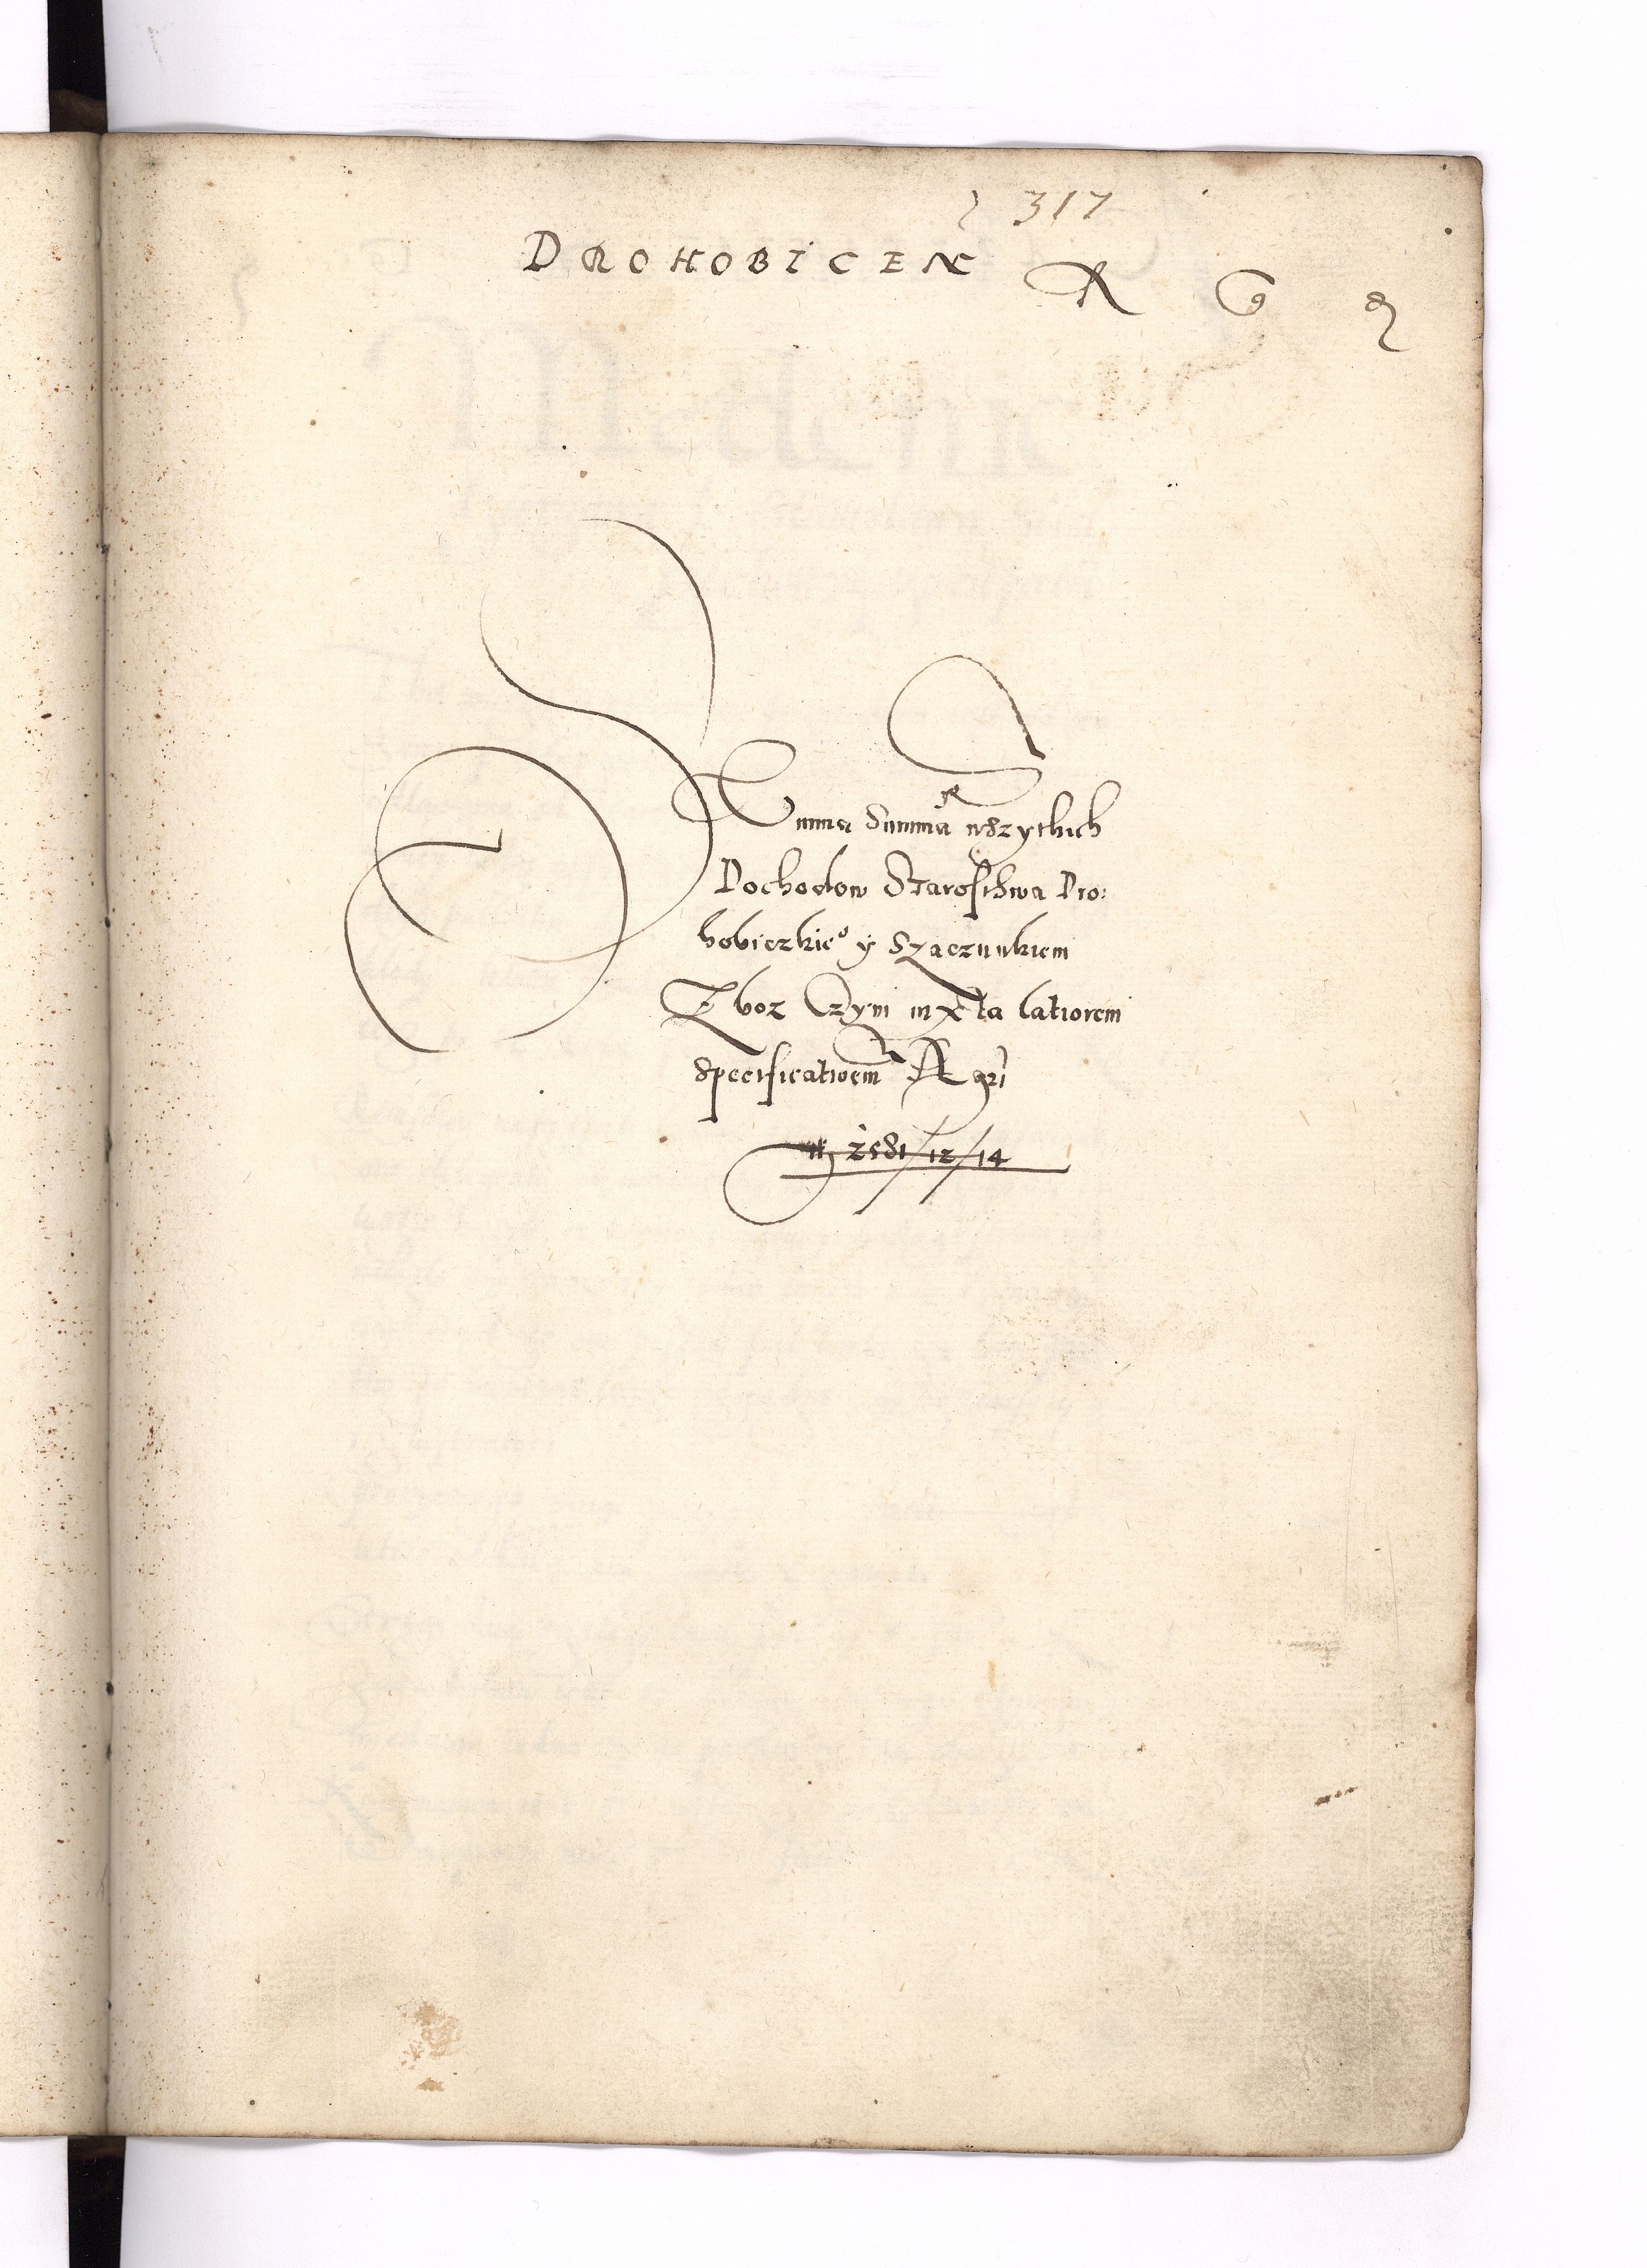 317
DROHOBICEN R G q
Summa Summar wszythkich
Dochodow Starosthwa Dro:
hobiczkie° y Szaczunkiem
Zboz Czyni iuxta latiorem
specificatioem R gri
fl 2581/12/14